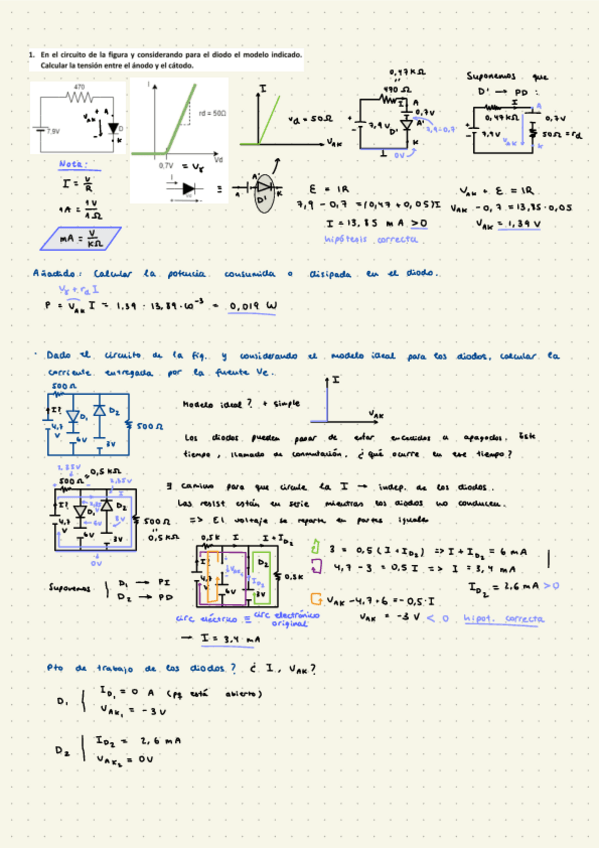 1. En el circuito de la figura y considerando para el diodo el modelo indicado.
Calcular la tensión entre el ánodo y el cátodo.
470
7.9V
D
I
rd = 50Ω
Vd
0,7V = Vγ
I
rd = 50Ω
VAK
0,47KΩ
470 Ω
7,9V
0,7V
A
A'
D'
K
0V
7,9-0,7
Suponemos que
D' → PD :
0,47KΩ
0,7V
7,9V
VAK
50Ω = rd
Nota:
I = V/R
1A = 1V/1Ω
mA = V/KΩ
E = IR
7,9 - 0,7 = (0,47 + 0,05)I
I = 13,85 mA > 0
hipótesis correcta
VAK + E = IR
VAK - 0,7 = 13,85·0,05
VAK = 1,39 V
Añadido: Calcular la potencia consumida o disipada en el diodo.
Vγ + rd I
P = VAK I = 1,39 · 13,89·10⁻³ = 0,019 W
· Dado el circuito de la fig. y considerando el modelo ideal para los diodos, calcular la
corriente entregada por la fuente Ve.
500Ω
I?
4,7 V
D1
D2
6V
3V
500Ω
Modelo ideal? + simple
I
VAK
Los diodos pueden pasar de estar encendidos a apagados. Este
tiempo, llamado de conmutación, ¿qué ocurre en ese tiempo?
2,35V
500Ω = 0,5KΩ
2,35V
I?
4,7 V
D1
D2
6V
3V
500Ω
= 0,5KΩ
0V
∃ camino para que circule la I → indep. de los diodos.
Las resist están en serie mientras los diodos no conducen.
=> El voltaje se reparte en partes iguales
Suponemos: D1 → PI
D2 → PD
0,5K I I+ID2
I?
4,7 V
6V
3V
ID2
0,5K
circ eléctrico ≡ circ electrónico
original
3 = 0,5 (I + ID2) => I + ID2 = 6 mA
4,7 - 3 = 0,5 I => I = 3,4 mA
ID2 = 2,6 mA > 0
VAK - 4,7 + 6 = -0,5·I
VAK = -3 V < 0 hipot. correcta
→ I = 3,4 mA
Pto de trabajo de los diodos? ¿ I, VAK?
D1
ID1 = 0 A (pq está abierto)
VAK1 = -3V
D2
ID2 = 2,6 mA
VAK2 = 0V